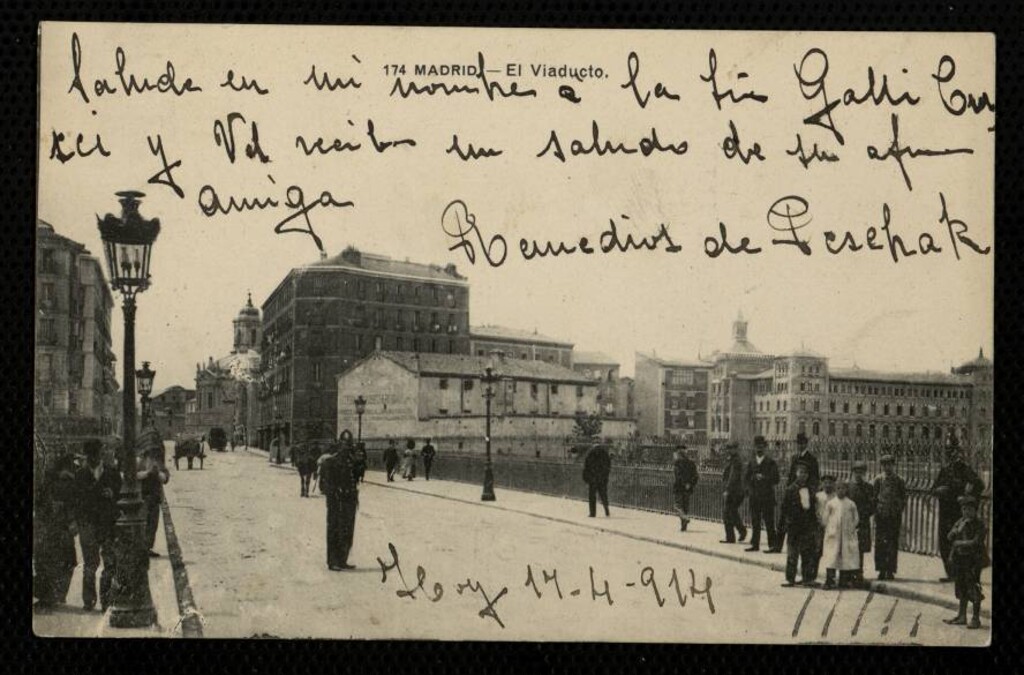 174 MADRID.—El Viaducto.
Salude en mi nombre a la Sra Galli Cur
sci y Vd. reciba un saludo de su afma
amiga
Remedios de Peschak
Hoy 17-4-914